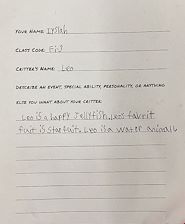 YOUR NAME: Irslah
CLASS CODE: FiJ
CRITTER'S NAME: Leo
DESCRIBE AN EVENT, SPECIAL ABILITY, PERSONALITY, OR ANYTHING
ELSE YOU WANT ABOUT YOUR CRITTER:
Leo is a happy Jellyfish. Leo's favorit
fruit is starfruit. Leo is a water animal.